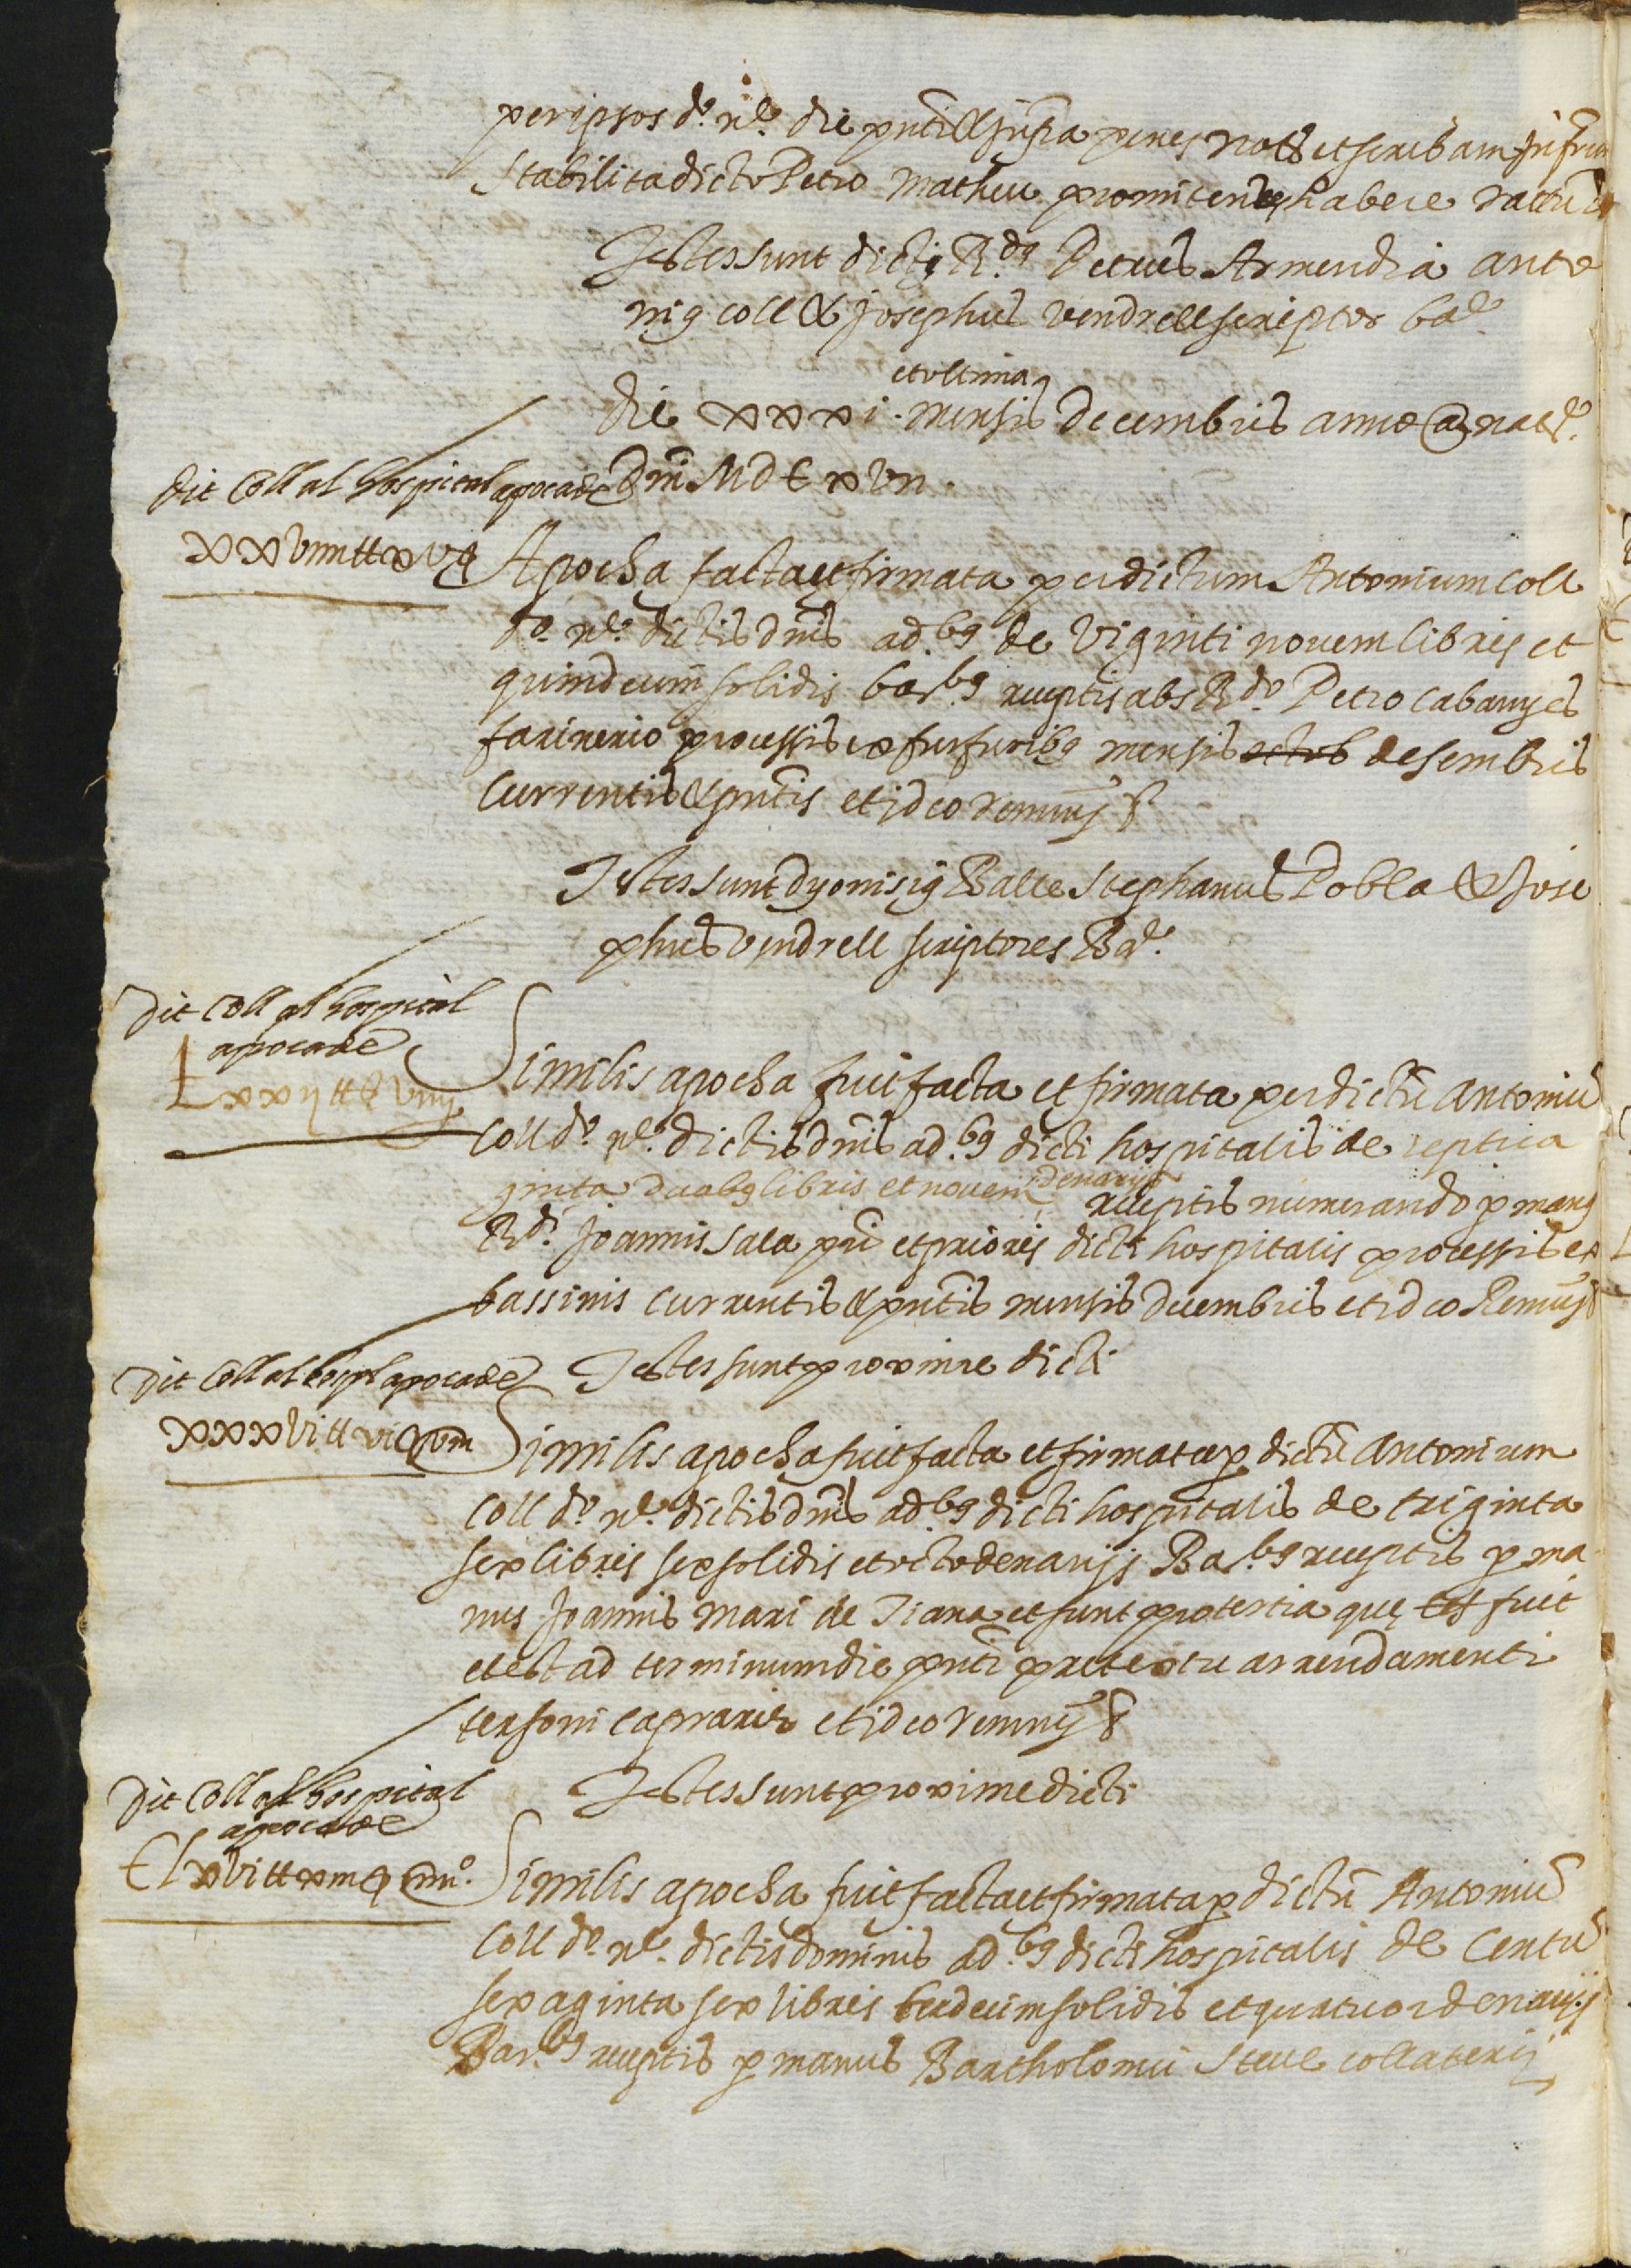 per ipsos d.º n.e die pnti & infra penes nots et scribam infrm
stabilita dicto Petro Matheu promitentes habere ratum &
Testes sunt dicti R.ds Petrus Armendia Anto
nig Coll & Josephus Vendrell scriptor ba.e
et ultima
die xxxi. mensis decembris anno a nat.e
dni MDCxvii.
dit Coll al hospital apoca de
xxviiii tt xv ß
Apocha facta et firmata per dictum Antonium Coll
d.º n.e dictis dnis ad.bg de viginti novem libris et
quindecim solidis bar.bg receptis abs R.do Petro Cabanyes
farinerio processis ex furfuribg mensis octob desembris
currentis & pntis et ideo renuns &
Testes sunt Dyonisig Balle Stephanus Pobla & Jose
phus Vendrell scriptores Ba.e
dit Coll al hospital
apoca de
Lxxii tt ß viiii
Similis apocha fuit facta et firmata per dictu Antoniu
Coll d.º n.e dictis dnis ad.bg dicti hospitalis de septua
ginta duabg libris et novem denarys
receptis numerando p mang
R.di Joannis Sala pri et prioris dicti hospitalis processis ex
bassinis currentis & pntis mensis decembris et ideo Renuns &
Testes sunt proxime dicti
dit Coll al hospl apoca de
xxxvi tt vi ß viii
Similis apocha fuit facta et firmata p dictu Antonium
Coll d.º n.e dictis dnis ad.bg dicti hospitalis de triginta
sex libris sex solidis et octo denarijs Ba.bg receptis p ma
nus Joannis Mari de Tiana et sunt pro tertia que est fuit
et est ad terminum die pnti pretextu arrendamenti
tersoni capraris et ideo renuns &
Testes sunt proxime dicti
dit Coll al hospital
apoca de
Clxvi tt xiii ß iiii.º
Similis apocha fuit facta et firmata p dictu Antoniu
Coll d.º n.e dictis dominis ad.bg dicti hospitalis de Centu
sexaginta sex libris terdecim solidis et quatuor denarijs
Bar.bg receptis p manus Bartholomei Steve collaterij